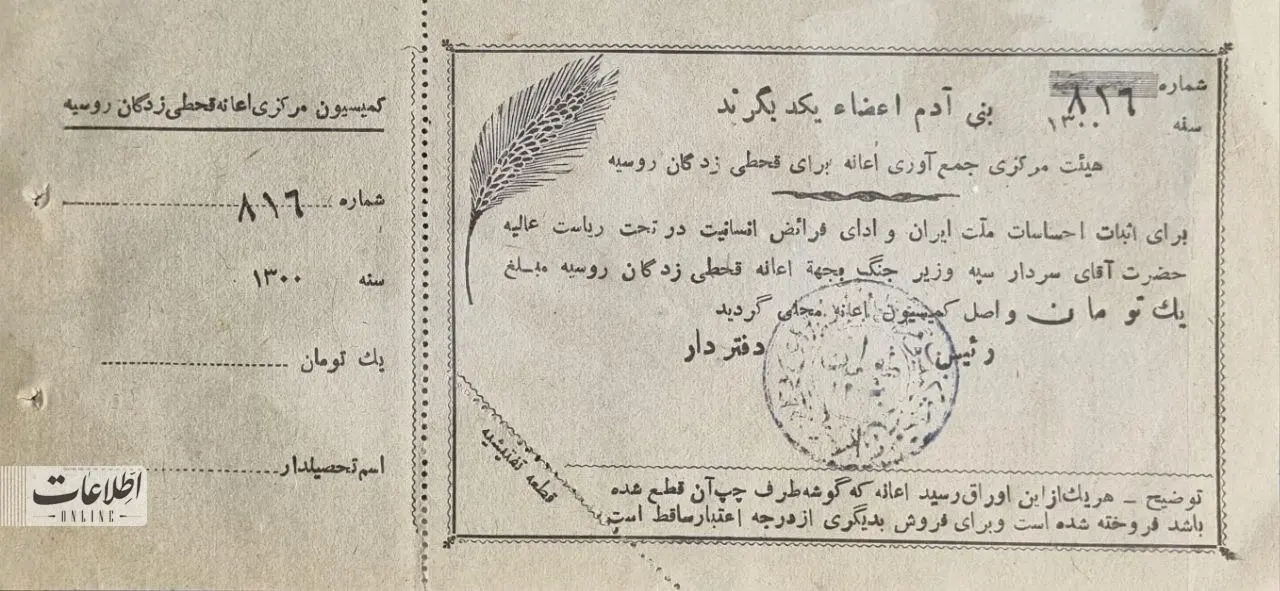 شماره ٨١٦
سنه ١٣٠٠
بنی آدم اعضاء یکدیگرند
هیئت مرکزی جمع آوری اُعانه برای قحطی زدگان روسیه
برای اثبات احساسات ملّت ایران و ادای فرائض انسانیت در تحت ریاست عالیه
حضرت آقای سردار سپه وزیر جنگ بجهة اعانه قحطی زدگان روسیه مبلغ
یك تو مان واصل کمیسیون اعانه محلی گردید
رئیس دفتر دار
قطعه تفتیشیه
توضیح ـ هر یك از این اوراق رسید اعانه که گوشه طرف چپ آن قطع شده
باشد فروخته شده است و برای فروش بدیگری از درجه اعتبار ساقط است
کمیسیون مرکزی اعانه قحطی زدگان روسیه
شماره ٨١٦
سنه ١٣٠٠
یك تومان
اسم تحصیلدار
اطلاعات
ONLINE